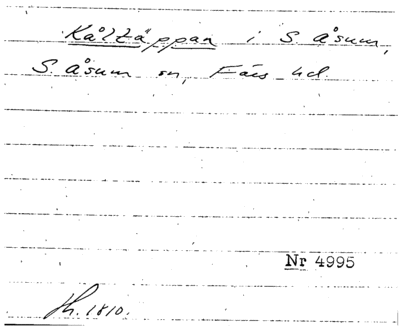 Kåltäppan i S. åsum,
S. åsum sn, Färs hd.
Nr 4995
Sk. 1810.